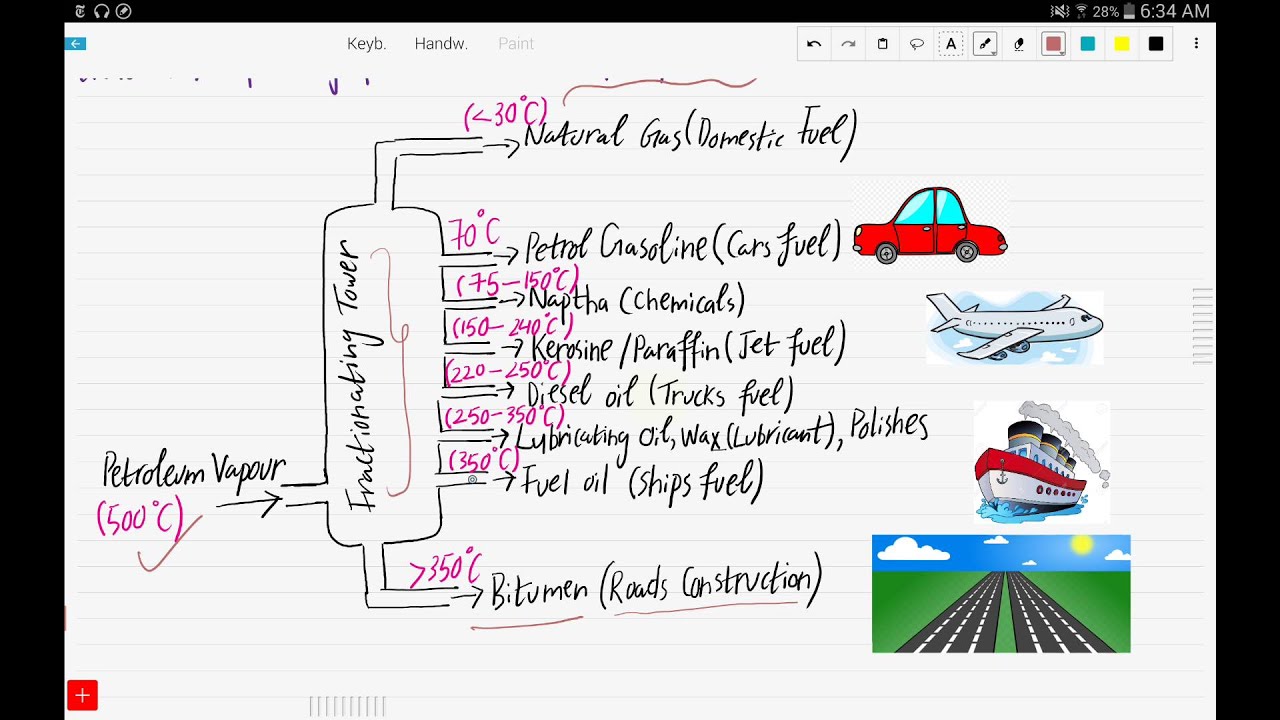 28% 6:34 AM
Keyb. Handw. Paint A
(<30°C)
Natural Gas (Domestic Fuel)
70°C
Petrol Gasoline (Cars fuel)
(75-150°C)
Naptha (Chemicals)
(150-240°C)
Kerosine / Paraffin (Jet fuel)
(220-250°C)
Diesel oil (Trucks fuel)
(250-350°C)
Lubricating Oil, Wax (Lubricant), Polishes
(350°C)
Fuel oil (Ships fuel)
Fractionating Tower
Petroleum Vapour
(500°C)
>350°C
Bitumen (Roads Construction)